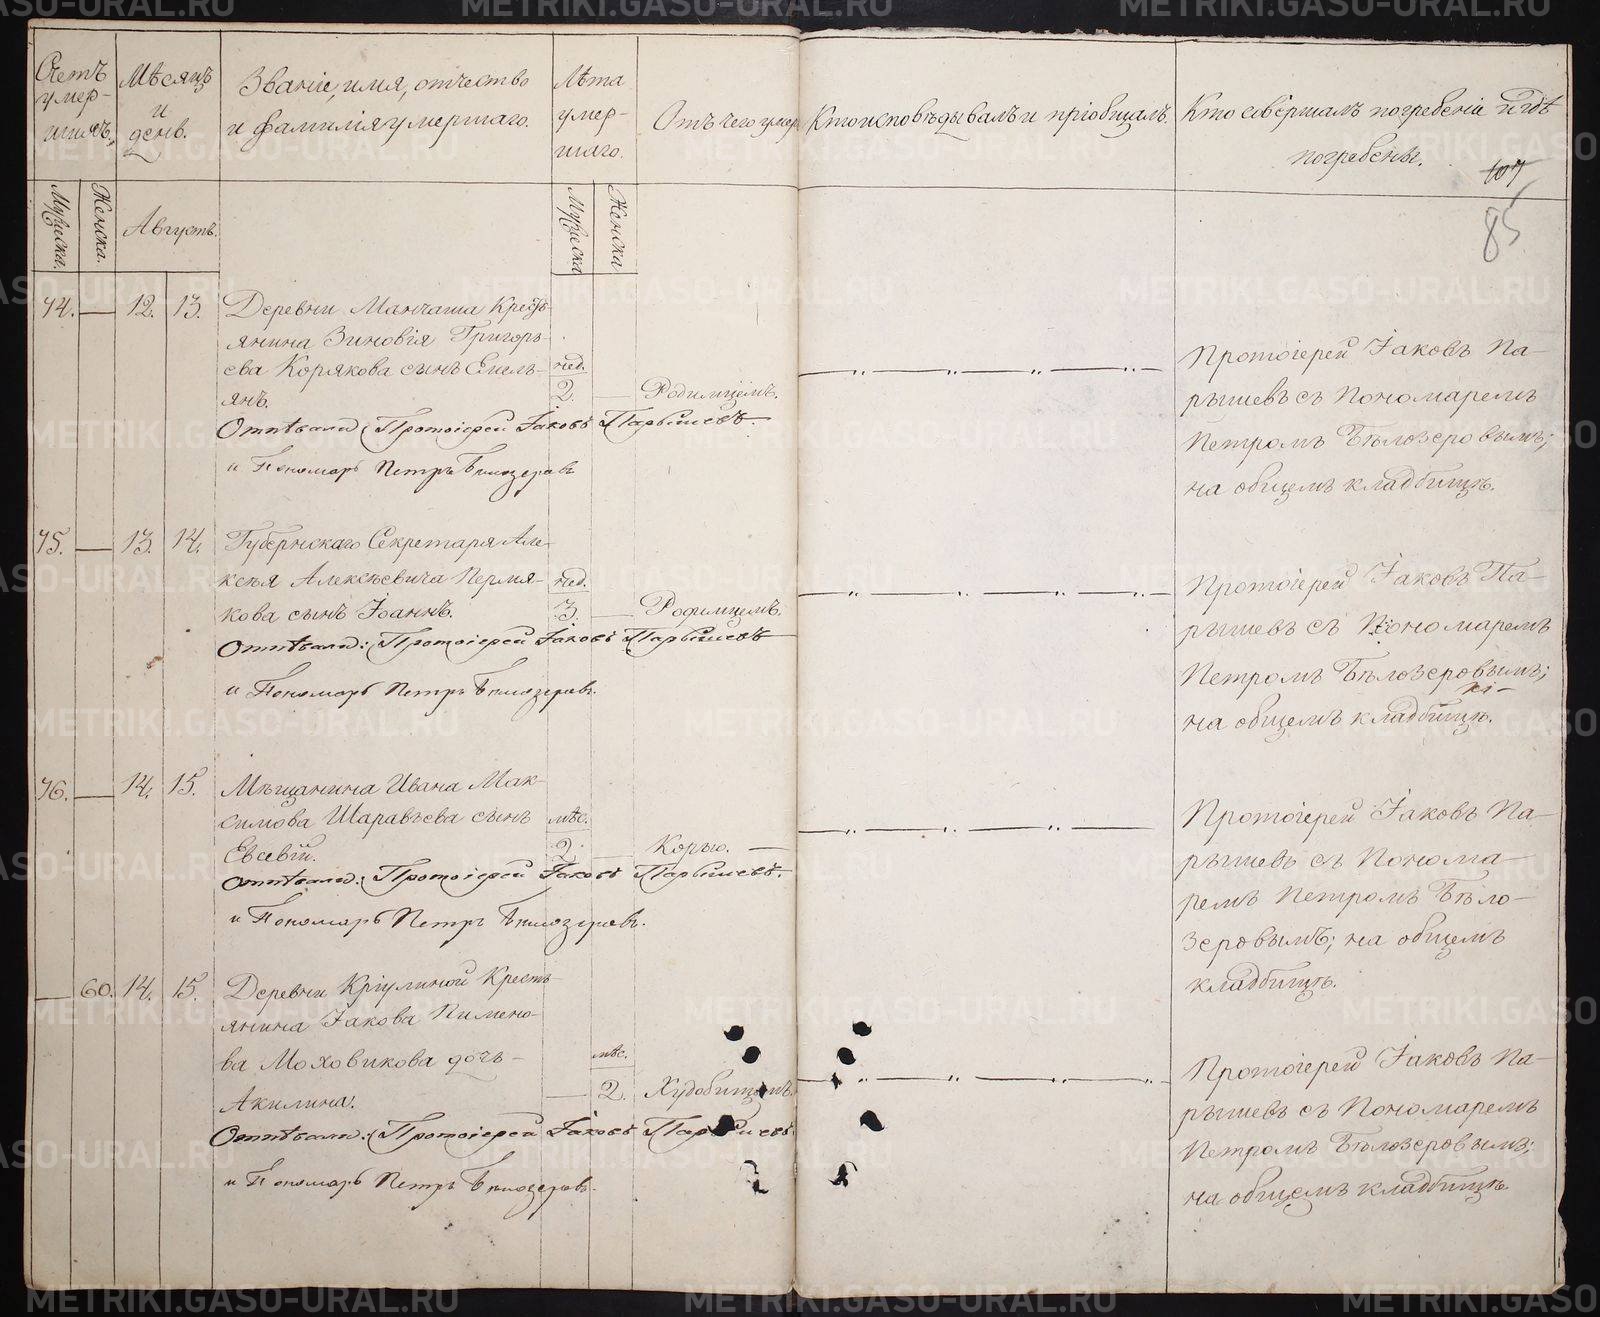 Счетъ умер-шихъ.
Мѣсяцъ и день.
Званіе, имя, отчество и фамилія умершаго.
Лѣта умер-шаго.
Отъ чего умеръ
Кто исповѣдывалъ и пріобщалъ.
Кто совершалъ погребеніе и гдѣ погребены.
107
85
Мужеска.
Женска.
Августъ.
Мужеска
Женска
74. — 12. 13.
Деревни Манчажа Кресть-
янина Зиновія Григорь-
ева Корякова сынъ Емель-
янъ.
нед.
2. — Родимцемъ.
Отпѣвали: Протоіерей Іаковъ Парышевъ.
и Пономарь Петръ Бѣлозеровъ
Протоіерей Іаковъ Па-
рышевъ съ Пономаремъ
Петромъ Бѣлозеровымъ;
на общемъ кладбищѣ.
75. — 13. 14.
Губернскаго Секретаря Але-
ксѣя Алексѣевича Пермя-
кова сынъ Іоаннъ.
нед.
3. — Родимцемъ.
Отпѣвали: Протоіерей Іаковъ Парышевъ
и Пономарь Петръ Бѣлозеровъ.
Протоіерей Іаковъ Па-
рышевъ съ Пономаремъ
Петромъ Бѣлозеровымъ;
на общемъ кладбищѣ.
76. — 14. 15.
Мѣщанина Ивана Мак-
симова Шаравьева сынъ
Евсевій.
мѣс.
2. — Корью. —
Отпѣвали: Протоіерей Іаковъ Парышевъ.
и Пономарь Петръ Бѣлозеровъ.
Протоіерей Іаковъ Па-
рышевъ съ Понома-
ремъ Петромъ Бѣло-
зеровымъ; на общемъ
кладбищѣ.
— 60. 14. 15.
Деревни Кріулиной Кресть-
янина Іакова Пимено-
ва Моховикова дочь —
Акилина.
мѣс.
— 2. Худобищемъ.
Отпѣвали: Протоіерей Іаковъ Парышевъ
и Пономарь Петръ Бѣлозеровъ.
Протоіерей Іаковъ Па-
рышевъ съ Пономаремъ
Петромъ Бѣлозеровымъ;
на общемъ кладбищѣ.
METRIKI.GASO-URAL.RU